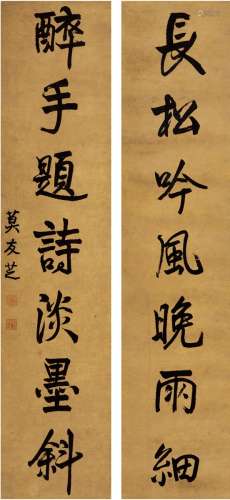 長松吟風晚雨細
醉手題詩淡墨斜
莫友芝